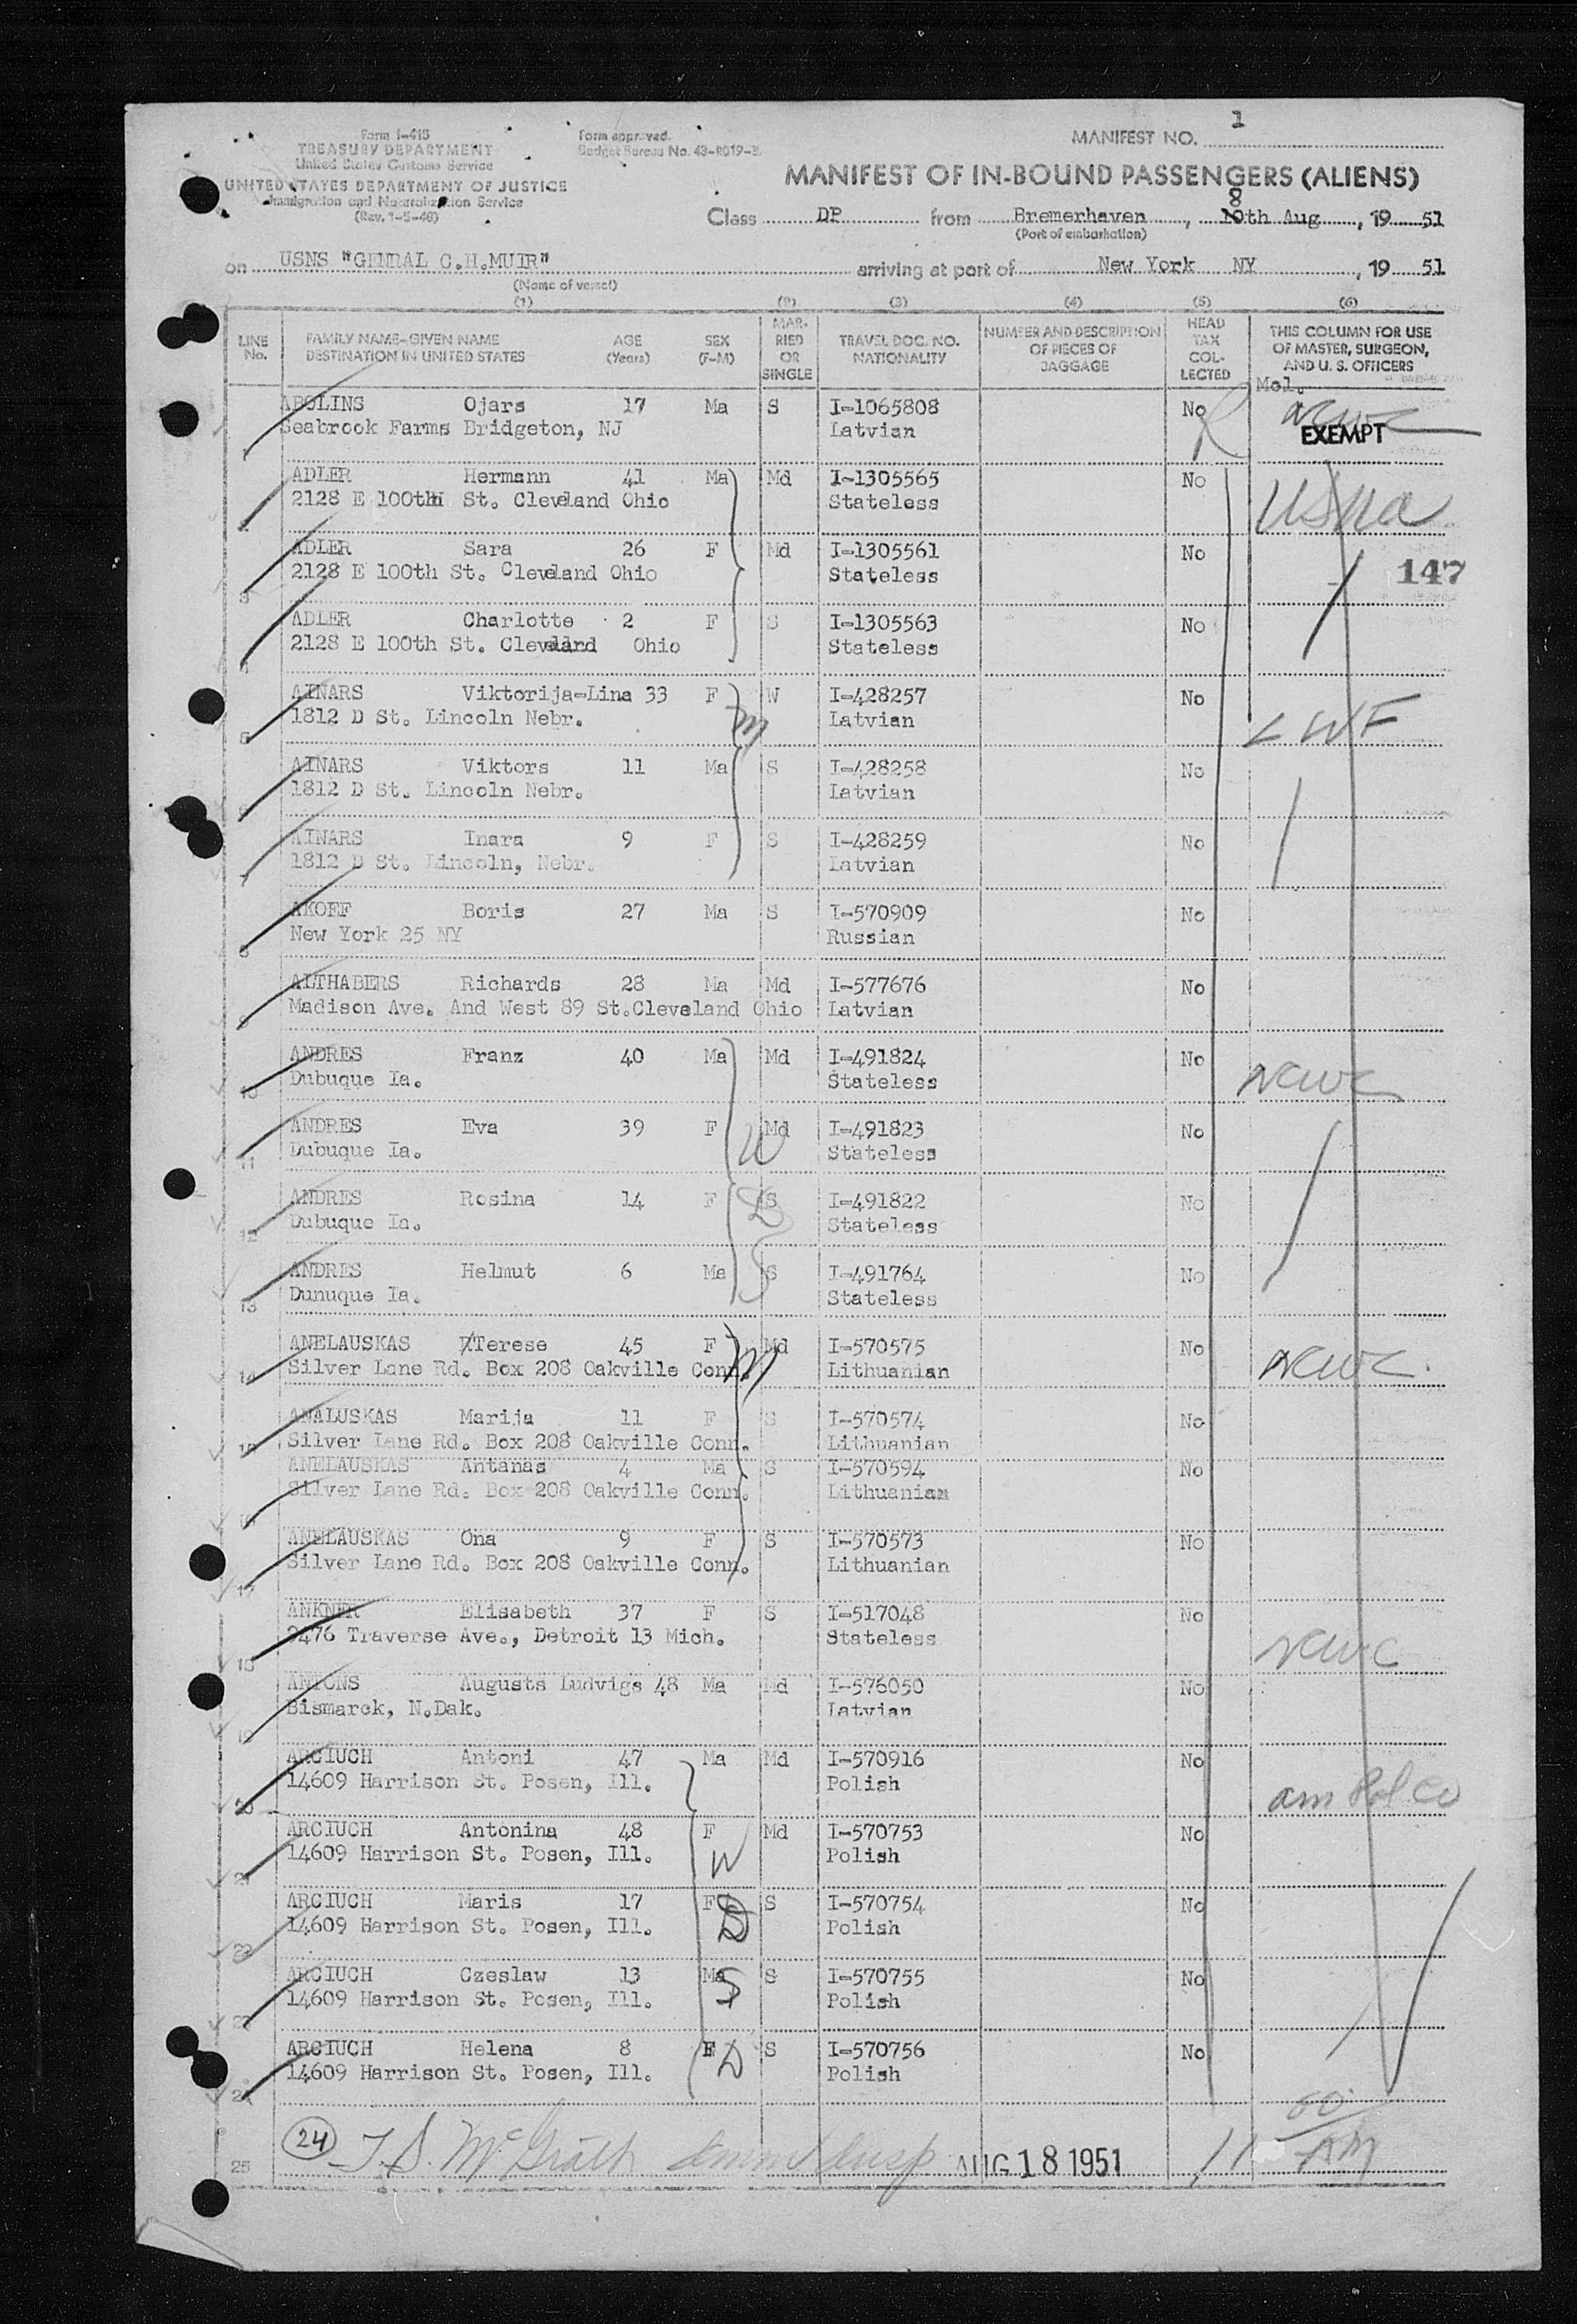 1
Form I-415
TREASURY DEPARTMENT
United States Customs Service
UNITED STATES DEPARTMENT OF JUSTICE
Immigration and Naturalization Service
(Rev. 1-5-48)
Form approved.
Budget Bureau No. 43-R019-2.
MANIFEST NO.
MANIFEST OF IN-BOUND PASSENGERS (ALIENS)
8
Class DP from Bremerhaven, 10th Aug, 19 51
(Port of embarkation)
on USNS "GENRAL C.H.MUIR" arriving at port of New York NY, 19 51
(Name of vessel)
(1) (2) (3) (4) (5) (6)
LINE No. FAMILY NAME-GIVEN NAME DESTINATION IN UNITED STATES AGE (Years) SEX (F-M) MARRIED OR SINGLE TRAVEL DOC. NO. NATIONALITY NUMBER AND DESCRIPTION OF PIECES OF BAGGAGE HEAD TAX COLLECTED THIS COLUMN FOR USE OF MASTER, SURGEON, AND U. S. OFFICERS
Mol.
ABOLINS Ojars 17 Ma S I-1065808 No NCWC
Seabrook Farms Bridgeton, NJ Latvian EXEMPT
1
ADLER Hermann 41 Ma Md I-1305565 No
2128 E 100th St. Cleveland Ohio Stateless USNA
2
ADLER Sara 26 F Md I-1305561 No
2128 E 100th St. Cleveland Ohio Stateless 147
3
ADLER Charlotte 2 F S I-1305563 No
2128 E 100th St. Cleveland Ohio Stateless
4
AINARS Viktorija-Lina 33 F W I-428257 No
1812 D St. Lincoln Nebr. M Latvian LWF
5
AINARS Viktors 11 Ma S I-428258 No
1812 D St. Lincoln Nebr. Latvian
6
AINARS Inara 9 F S I-428259 No
1812 D St. Lincoln, Nebr. Latvian
7
AKOFF Boris 27 Ma S I-570909 No
New York 25 NY Russian
8
ALTHABERS Richards 28 Ma Md I-577676 No
Madison Ave. And West 89 St.Cleveland Ohio Latvian
9
ANDRES Franz 40 Ma Md I-491824 No
Dubuque Ia. Stateless NCWC
10
ANDRES Eva 39 F Md I-491823 No
Dubuque Ia. W Stateless
11
ANDRES Rosina 14 F D S I-491822 No
Dubuque Ia. Stateless
12
ANDRES Helmut 6 Ma S S I-491764 No
Dunuque Ia. Stateless
13
ANELAUSKAS Terese 45 F Md I-570575 No
Silver Lane Rd. Box 208 Oakville Conn. M Lithuanian NCWC
14
ANALUSKAS Marija 11 F S I-570574 No
15 Silver Lane Rd. Box 208 Oakville Conn. Lithuanian
ANELAUSKAS Antanas 4 Ma S I-570594 No
Silver Lane Rd. Box 208 Oakville Conn. Lithuanian
16
ANELAUSKAS Ona 9 F S I-570573 No
Silver Lane Rd. Box 208 Oakville Conn. Lithuanian
17
ANKNER Elisabeth 37 F S I-517048 No
9476 Traverse Ave., Detroit 13 Mich. Stateless NCWC
18
ANTONS Augusts Ludvigs 48 Ma Md I-576050 No
Bismarck, N.Dak. Latvian
19
ARCIUCH Antoni 47 Ma Md I-570916 No
14609 Harrison St. Posen, Ill. Polish am Pol Co
20
ARCIUCH Antonina 48 F Md I-570753 No
14609 Harrison St. Posen, Ill. W Polish
21
ARCIUCH Maris 17 F S I-570754 No
14609 Harrison St. Posen, Ill. D Polish
22
ARCIUCH Czeslaw 13 Ma S I-570755 No
14609 Harrison St. Posen, Ill. S Polish
23
ARCIUCH Helena 8 F D S I-570756 No
14609 Harrison St. Posen, Ill. Polish
24
24 T.S. McGrath Imm Insp AUG 18 1951 11 00 AM
25